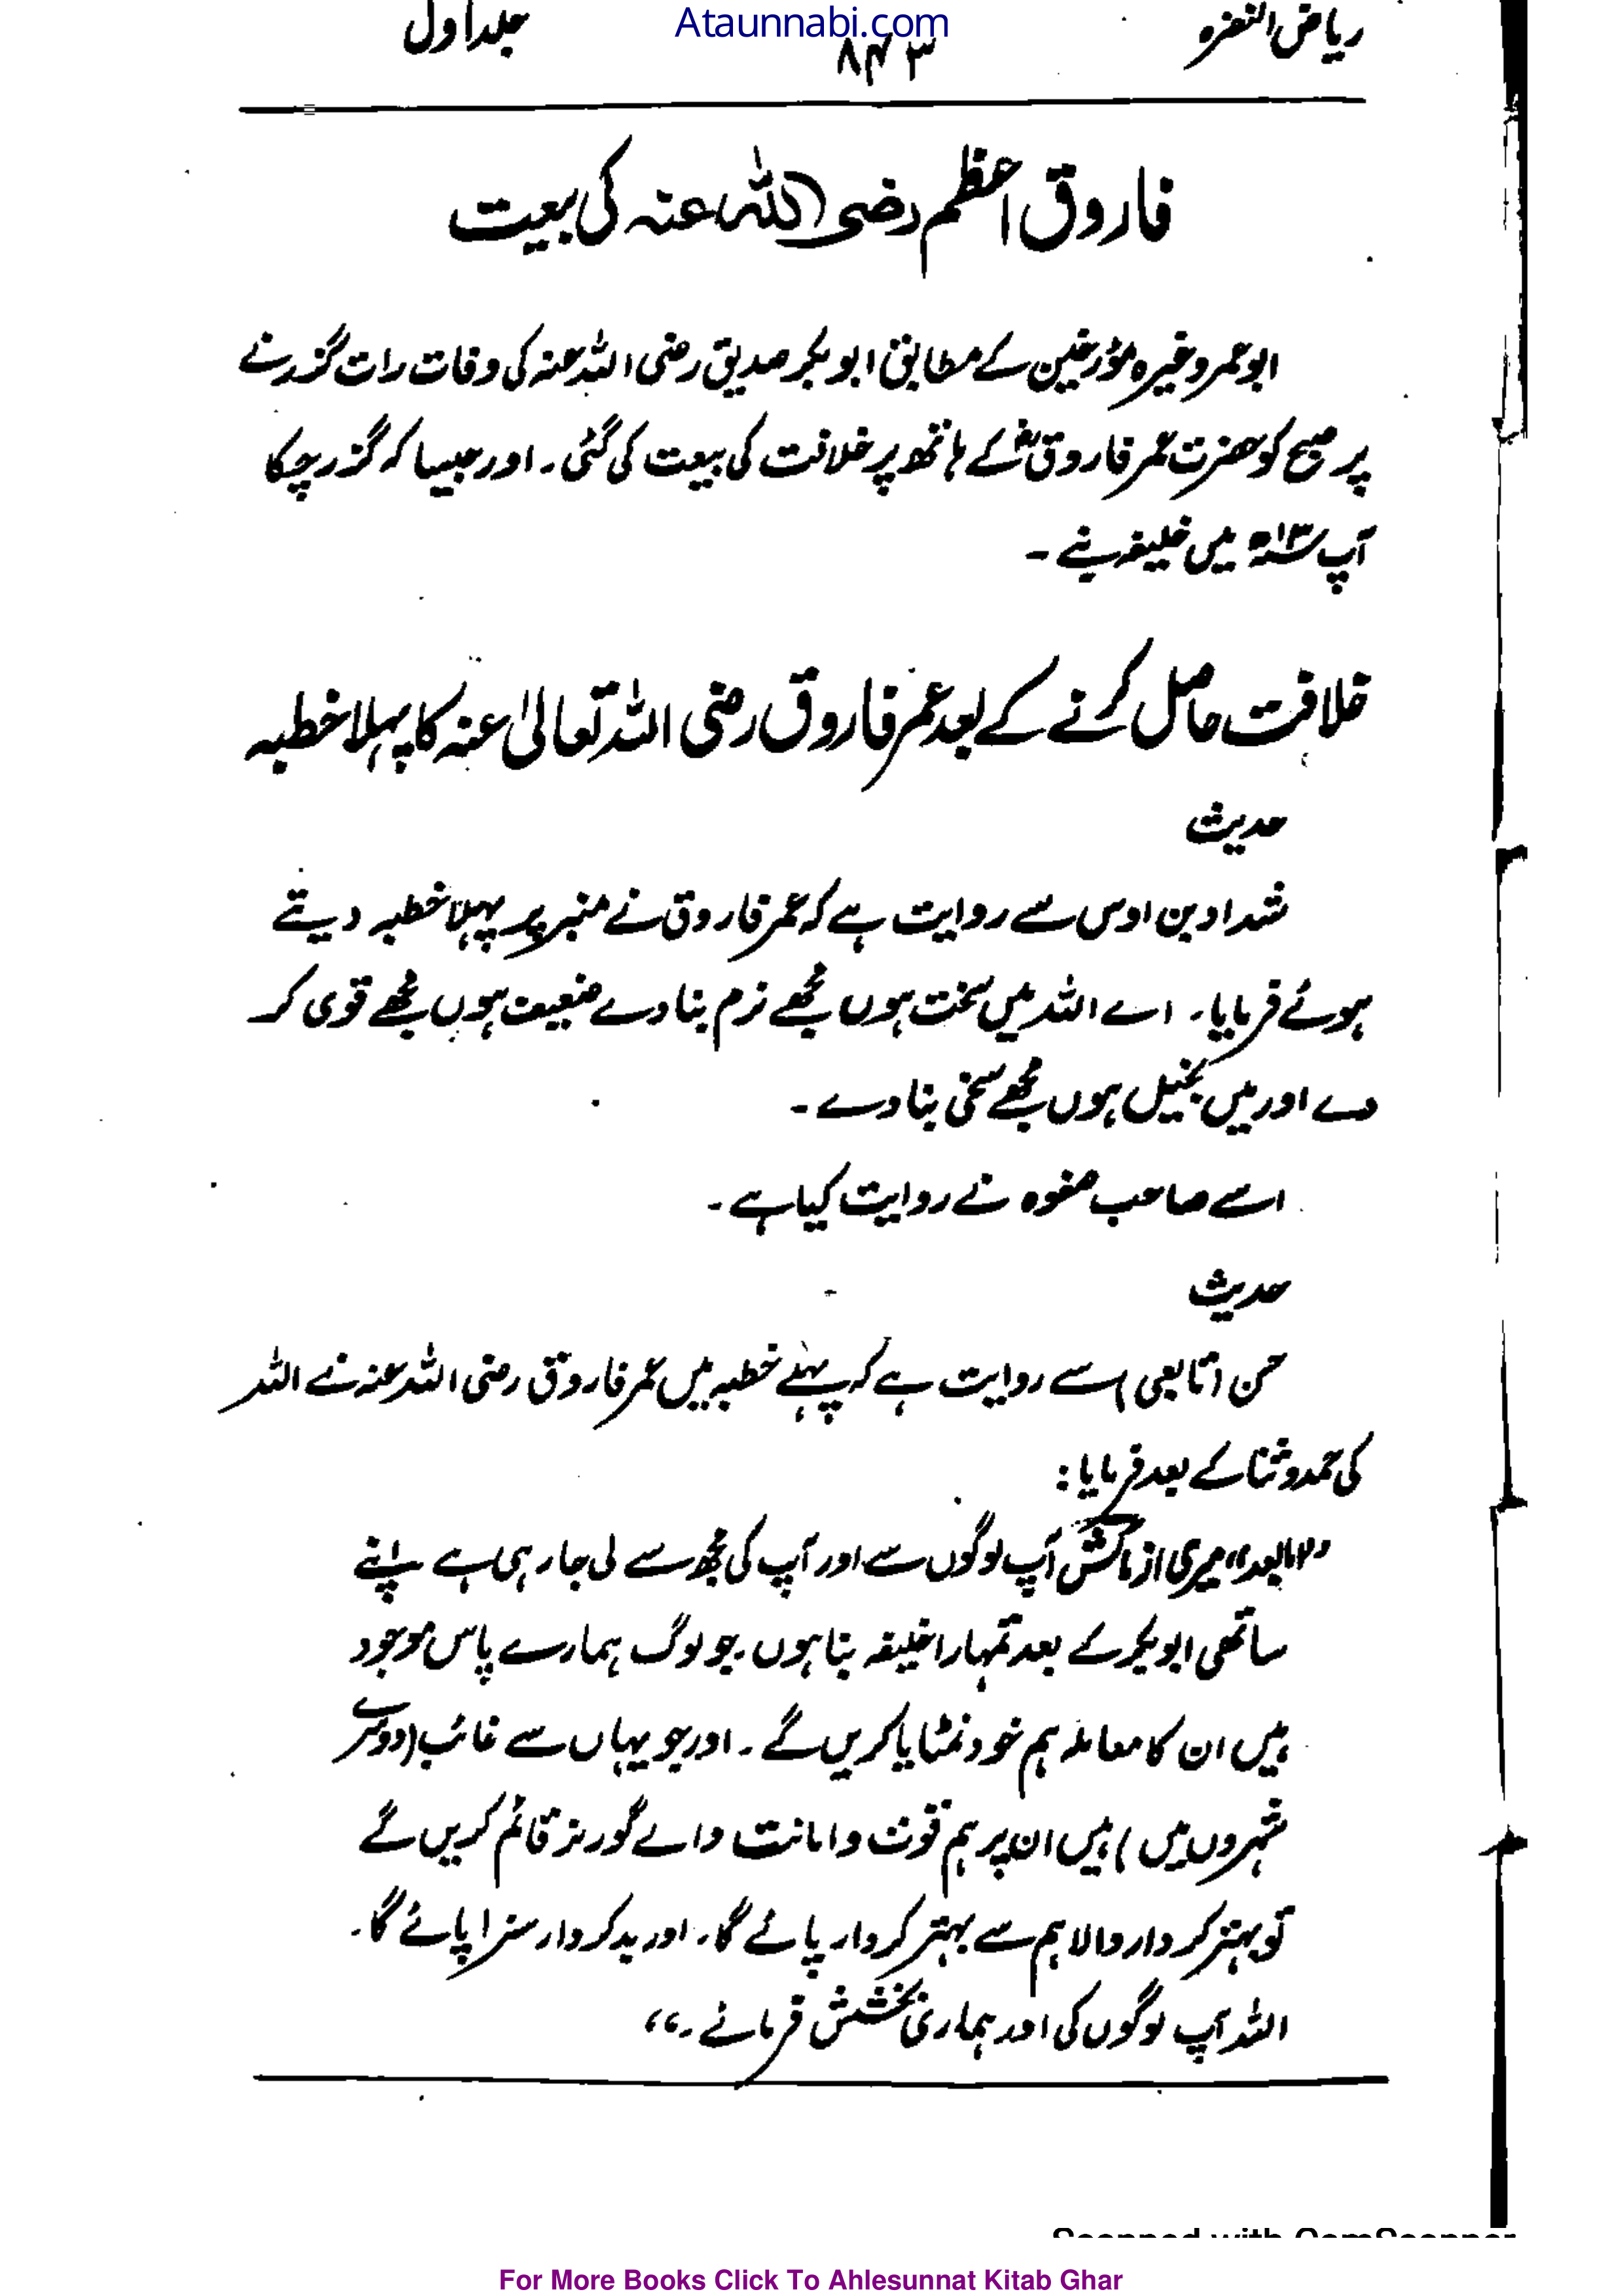 ریاض النضرہ
Ataunnabi.com
۸۴۳
جلد اول
فاروق اعظم رضی اللہ عنہ کی بیعت
ابو عمر وغیرہ مؤرخین کے مطابق ابو بکر صدیق رضی اللہ عنہ کی وفات رات گزرنے
پر صبح کو حضرت عمر فاروقؓ کے ہاتھ پر خلافت کی بیعت کی گئی۔ اور جیسا کہ گزر چکا
آپ ۱۳ھ میں خلیفہ بنے۔
خلافت حاصل کرنے کے بعد عمر فاروق رضی اللہ تعالیٰ عنہ کا پہلا خطبہ
حدیث
شداد بن اوس سے روایت ہے کہ عمر فاروق نے منبر پر پہلا خطبہ دیتے
ہوئے فرمایا۔ اے اللہ میں سخت ہوں مجھے نرم بنا دے ضعیف ہوں مجھے قوی کر
دے اور میں بخیل ہوں مجھے سخی بنا دے۔
اسے صاحب صفوہ نے روایت کیا ہے۔
حدیث
حسن (تابعی) سے روایت ہے کہ پہلے خطبہ میں عمر فاروق رضی اللہ عنہ نے اللہ
کی حمد و ثنا کے بعد فرمایا:
”امابعد“ میری ازمائش آپ لوگوں سے اور آپ کی مجھ سے لی جا رہی ہے اپنے
ساتھی ابو بکر کے بعد تمہارا خلیفہ بنا ہوں۔ جو لوگ ہمارے پاس موجود
ہیں ان کا معاملہ ہم خود نمٹایا کریں گے۔ اور جو یہاں سے غائب (دوسرے
شہروں میں) ہیں ان پر ہم قوت و امانت والے گورنر قائم کریں گے
تو بہتر کردار والا ہم سے بہتر کردار پائے گا۔ اور بدکردار سزا پائے گا۔
اللہ آپ لوگوں کی اور ہماری بخشش فرمائے۔“
For More Books Click To Ahlesunnat Kitab Ghar